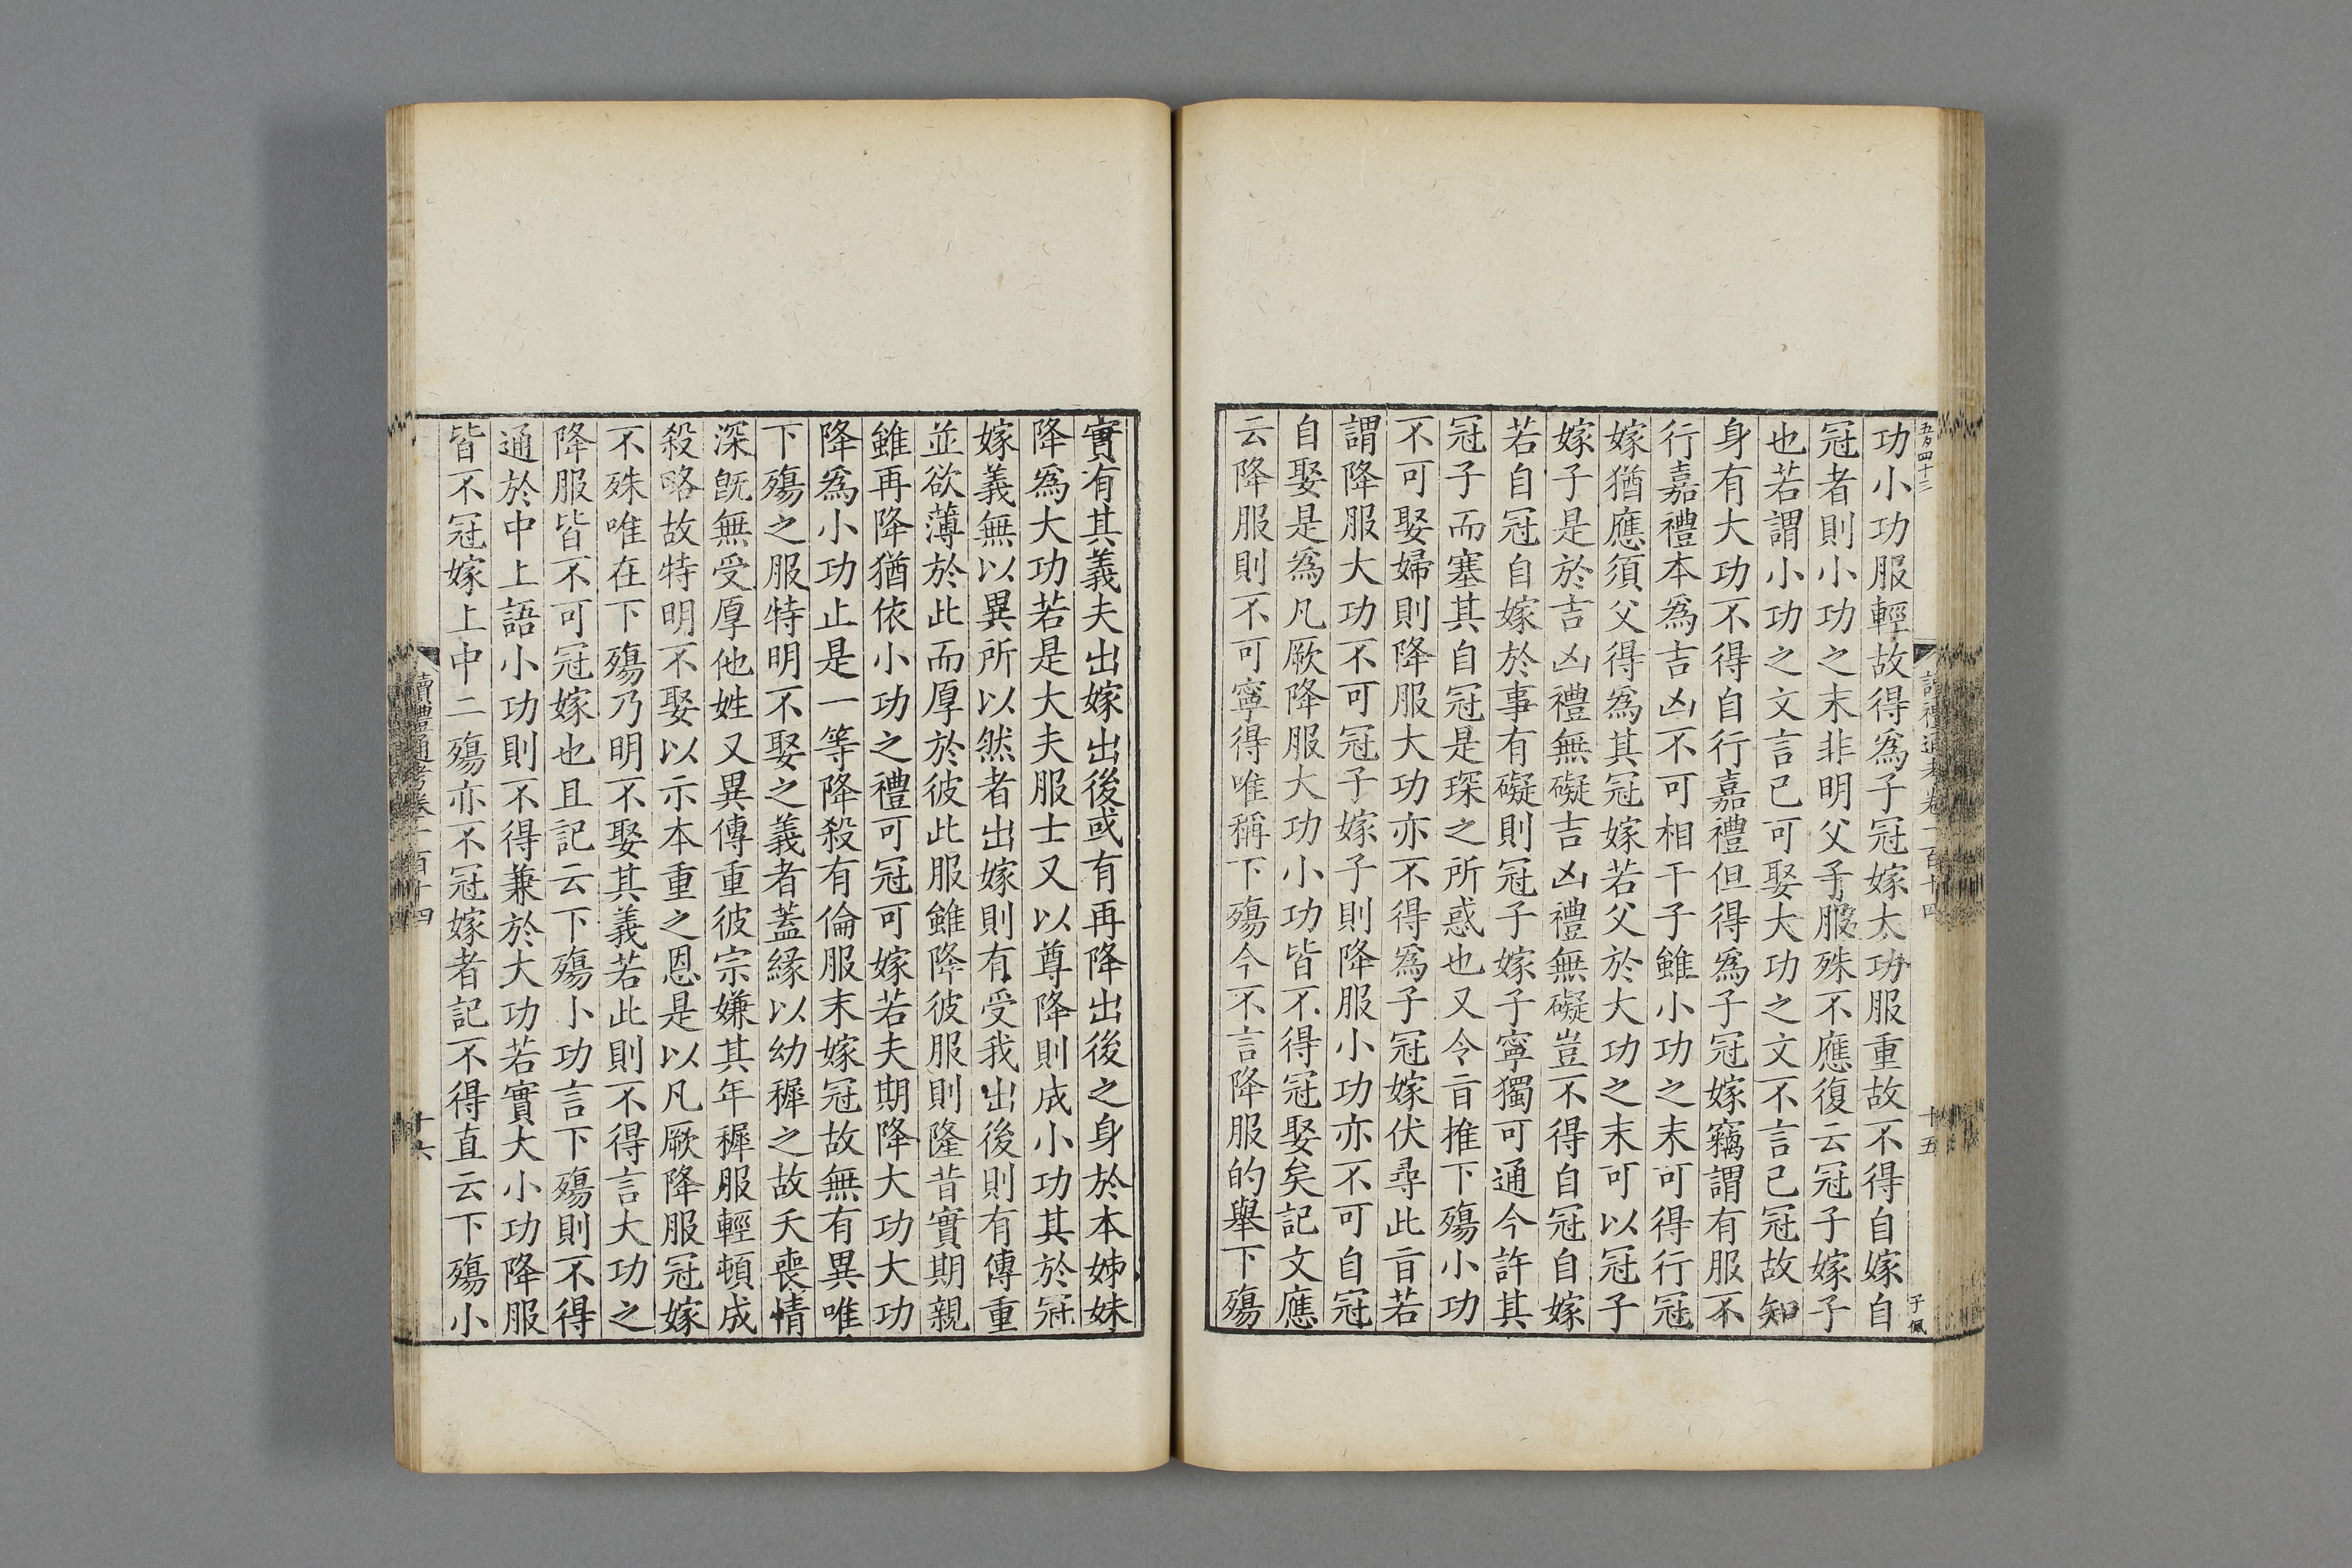 五百四十三
讀禮通考卷一百十四
十五
子佩
功小功服輕故得爲子冠嫁大功服重故不得自嫁自
冠者則小功之末非明父子服殊不應復云冠子嫁子
也若謂小功之文言已可娶大功之文不言已冠故知
身有大功不得自行嘉禮但得爲子冠嫁竊謂有服不
行嘉禮本爲吉凶不可相干子雖小功之末可得行冠
嫁猶應須父得爲其冠嫁若父於大功之末可以冠子
嫁子是於吉凶禮無礙吉凶禮無礙豈不得自冠自嫁
若自冠自嫁於事有礙則冠子嫁子寧獨可通今許其
冠子而塞其自冠是琛之所惑也又令旨推下殤小功
不可娶婦則降服大功亦不得爲子冠嫁伏尋此旨若
謂降服大功不可冠子嫁子則降服小功亦不可自冠
自娶是爲凡厥降服大功小功皆不得冠娶矣記文應
云降服則不可寧得唯稱下殤今不言降服的舉下殤
實有其義夫出嫁出後或有再降出後之身於本姊妹
降爲大功若是大夫服士又以尊降則成小功其於冠
嫁義無以異所以然者出嫁則有受我出後則有傳重
並欲薄於此而厚於彼此服雖降彼服則隆昔實期親
雖再降猶依小功之禮可冠可嫁若夫期降大功大功
降爲小功止是一等降殺有倫服末嫁冠故無有異唯
下殤之服特明不娶之義者蓋緣以幼穉之故夭喪情
深旣無受厚他姓又異傳重彼宗嫌其年穉服輕頓成
殺略故特明不娶以示本重之恩是以凡厥降服冠嫁
不殊唯在下殤乃明不娶其義若此則不得言大功之
降服皆不可冠嫁也且記云下殤小功言下殤則不得
通於中上語小功則不得兼於大功若實大小功降服
皆不冠嫁上中二殤亦不冠嫁者記不得直云下殤小
讀禮通考卷一百十四
十六